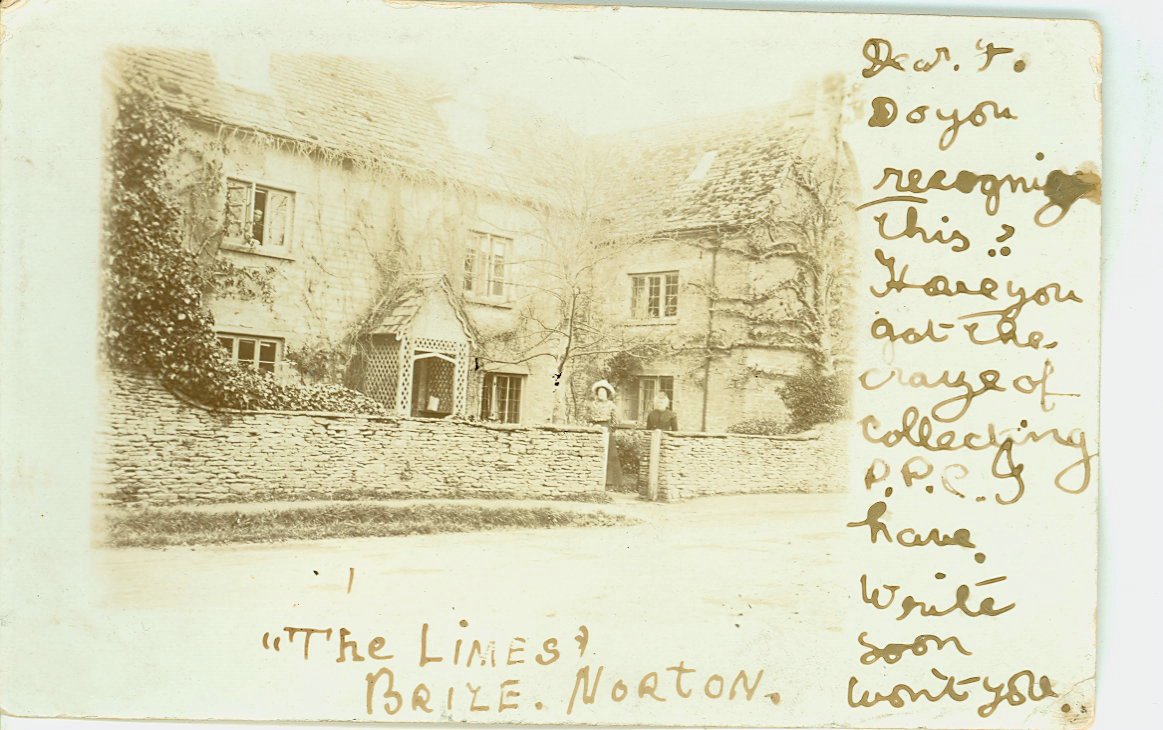 Dear. F.
Do you
recognize
this ?
Have you
got the
craze of
collecting
P.P.C. I
have.
Write
soon
won't you..
"The LIMES"
BRIZE. NORTON.